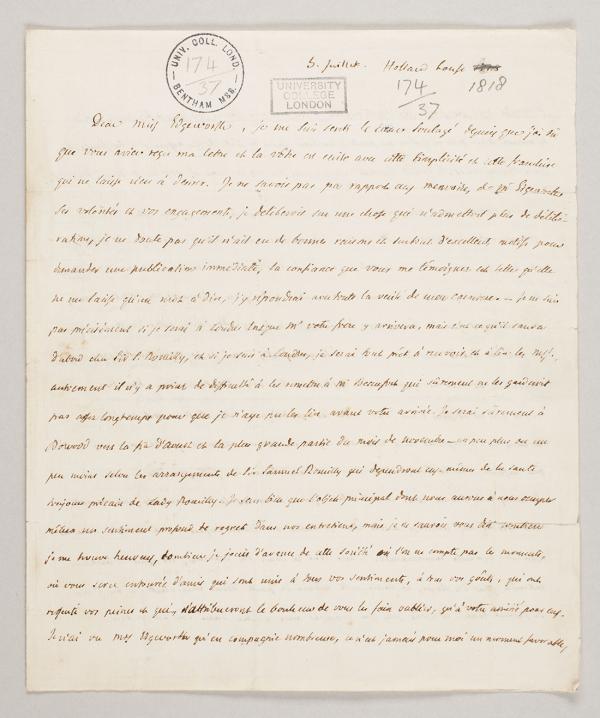 UNIV. COLL. LOND.
174
37
BENTHAM MSS.
UNIVERSITY
COLLEGE
LONDON
3. juillet. Holland house
174
37
1818
Dear miss Edgeworth, je me suis senti le cœur soulagé depuis que j'ai su
que vous aviez reçu ma lettre et la vôtre est écrite avec cette simplicité et cette franchise
qui ne laisse rien à désirer. Je ne savois pas par rapport aux mémoires, de Mr Edgeworth
ses volontés et vos engagements, je délibérois sur une chose qui n'admettoit plus de délibé-
ration, je ne doute pas qu'il n'ait eu de bonnes raisons et surtout d'excellents motifs pour
demander une publication immédiate, la confiance que vous me témoignez est telle qu'elle
ne me laisse qu'un mot à dire, j'y répondrai avec toute la
pas précisément si je serai à Londres lorsque Mr votre frère y arrivera, mais
d'abord chez Sir S. Romilly, et si je suis à Londres, je serai tout prêt à recevoir et à lire les Mss.,
autrement il n'y a point de difficulté à les remettre à qui sûrement ne les garderoit
pas assez longtemps pour que je n'aye pu les lire avant votre arrivée. Je serai sûrement à
Bowood vers la fin d'aoust et la plus grande partie du mois de novembre - un peu plus ou un
peu moins selon les arrangements de Sir Samuel Romilly qui dépendront eux-mêmes de la santé
toujours précaire de Lady Romilly. Je sens bien que l'objet principal dont nous aurons à nous occuper
mêlera un sentiment profond de regret dans nos entretiens, mais je ne saurois vous dire combien
je me trouve heureux, combien je jouis d'avance de cette société où l'on ne compte pas les moments,
où vous serez entourée d'amis qui sont unis à tous vos sentiments, à tous vos goûts, qui ont
respecté vos peines et qui s'attribueront le bonheur de vous les faire oublier, qu'à votre amitié pour eux.
Je n'ai vu miss Edgeworth qu'en compagnie nombreuse, ce n'est jamais pour moi un moment favorable,